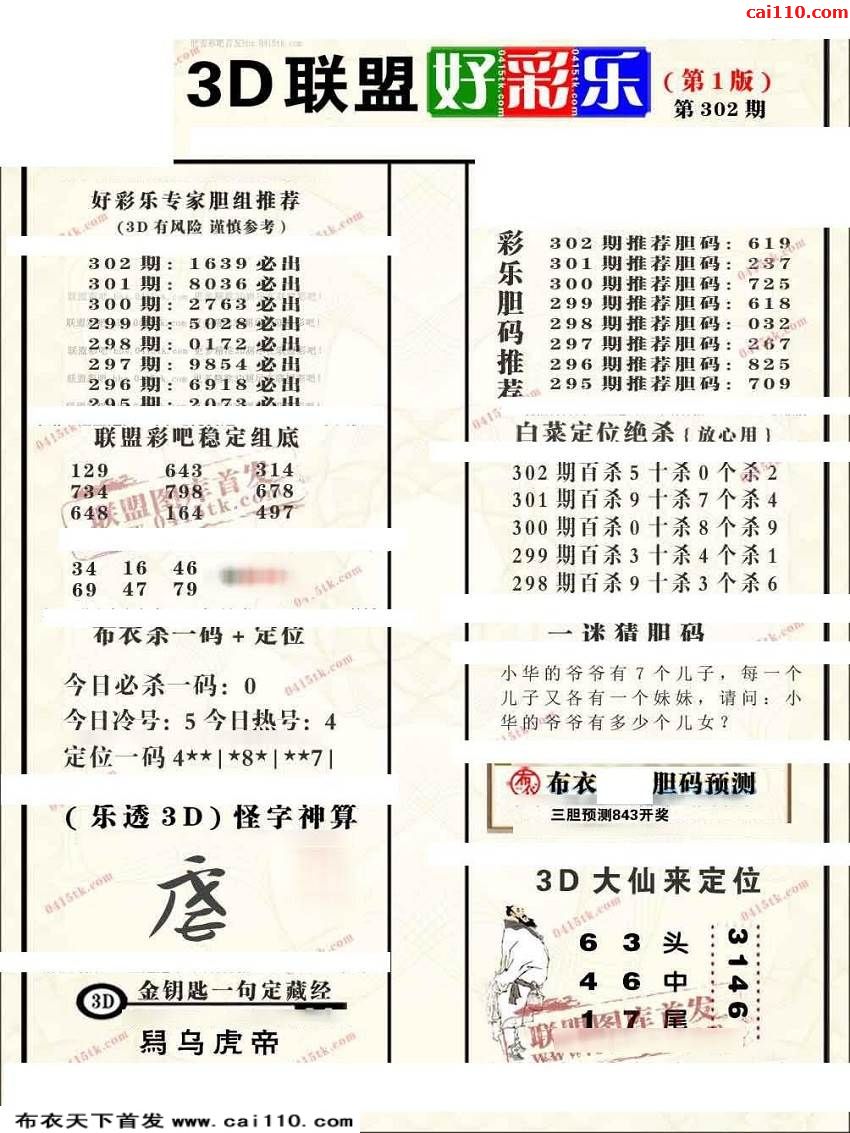 cai110.com
3D联盟好彩乐
(第1版)
第302期
好彩乐专家胆组推荐
(3D有风险 谨慎参考)
302期：1639必出
301期：8036必出
300期：2763必出
299期：5028必出
298期：0172必出
297期：9854必出
296期：6918必出
295期：2073必出
联盟彩吧稳定组底
129 643 314
734 798 678
648 164 497
34 16 46
69 47 79
布衣杀一码+定位
今日必杀一码：0
今日冷号：5 今日热号：4
定位一码 4**|*8*|**7|
(乐透3D)怪字神算
3D 金钥匙一句定藏经
舄乌虎帝
彩乐胆码推荐
302期推荐胆码：619
301期推荐胆码：237
300期推荐胆码：725
299期推荐胆码：618
298期推荐胆码：032
297期推荐胆码：267
296期推荐胆码：825
295期推荐胆码：709
白菜定位绝杀{放心用}
302期百杀5十杀0个杀2
301期百杀9十杀7个杀4
300期百杀0十杀8个杀9
299期百杀3十杀4个杀1
298期百杀9十杀3个杀6
一迷猜胆码
小华的爷爷有7个儿子，每一个
儿子又各有一个妹妹，请问：小
华的爷爷有多少个儿女？
布衣 胆码预测
三胆预测843开奖
3D大仙来定位
6 3 头
4 6 中
1 7 尾
3146
联盟图库首发
0415tk.com
布衣天下首发 www.cai110.com